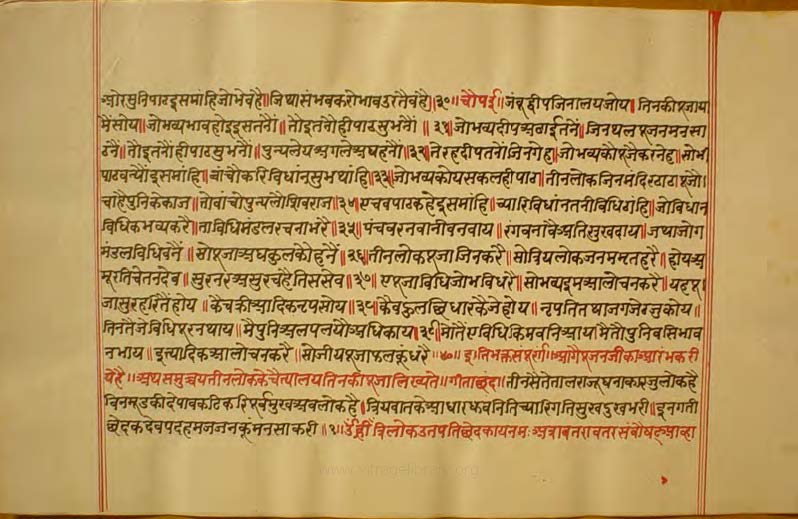 ओरसुनिपाठइसमांहिजोभेवहै॥जिथासंभवकरोभावउरतैवहै॥३०॥चौपई॥जंबूद्वीपजिनालयजोय।तिनकीपूजाया
मैंसोय॥जोभव्यभावहोइइसतनौं॥तौइतनौहीपाठसुभनौं॥३१॥जोभव्यदीपअढाईतनें॥जिनथलपूजनमनसा
ठनैं॥तौइतनौहीपाठसुभनौं॥पुन्यलेयअगलेअघहनौं॥३२॥तेरहदीपतनोंजिनगेह॥जोभव्यकोपूजेकरनेह॥सोभी
पाठबन्योंइसमांहि॥बांचोकरिविधांनसुभथांहि॥३३॥जोभव्यकोयसकलहीपाठ॥तीनलोकजिनमंदिरठाठ॥पूजो
चाहैपुनिकेकाज॥तोबांचोपुन्यलौशिवराज॥३४॥एचवपाठकहेइसमांहि॥च्यारिविधांनतनीविधिठांहि॥जोविधान
विधिकभव्यकरै॥ताविधिमंडलरचनाभरै॥३५॥पंचवरनवानीवनवाय॥रंगवनांवैअतिसुखदाय॥जथाजोग
मंडलविधिवनैं॥सोपूजाअघकुलकोहनैं॥३६॥तीनलोकपूजाजिनकरै॥सोत्रियलोकजनममतहरै॥होयअ
मूरतिचेतनदेव॥सुरनरअसुरचहैतिससेव॥३७॥एपूजाविधिजोभविधरै॥सोभव्यइमआलोचनकरै॥यहपू
जासुरहरितैंहोय॥कैचक्रीआदिकनृपसोय॥३८॥कैवहुलछिधारकैजेहोय॥नृपतितथाजगजेरजुकोय॥
तिनतैजेविधिपूरनथाय॥मैपुनिअलपलयौअधिकाय॥३९॥मोतैएविधिकिमवनिआय॥मैतौपुनिवसिभाव
नभाय॥इत्यादिकआलोचनकरै॥सोजीयपूजाफलकूंधरै॥४०॥इतिभक्तसंपूर्ण॥आगैपूजनजीकाआरंभकरी
येहै॥अथसमुच्चयतीनलोककेचैत्यालयतिनकीपूजालिख्यते॥गीताछंद॥तीनसैतेतालराजूघनाकारजुलोकहै
विनमूडकीदेपावकटिकरिपूर्वमुखअवलोकहै॥त्रियवातकेआधारध्रुवनितिच्यारिगतिसुखदुखभरी॥इनगती
छेदकदेवपदहमजजनकूंमनसाकरी॥१॥ॐह्रींत्रिलोकउतपतिछेदकायनमःअत्रावतरावतरसंवौषट्आव्हा